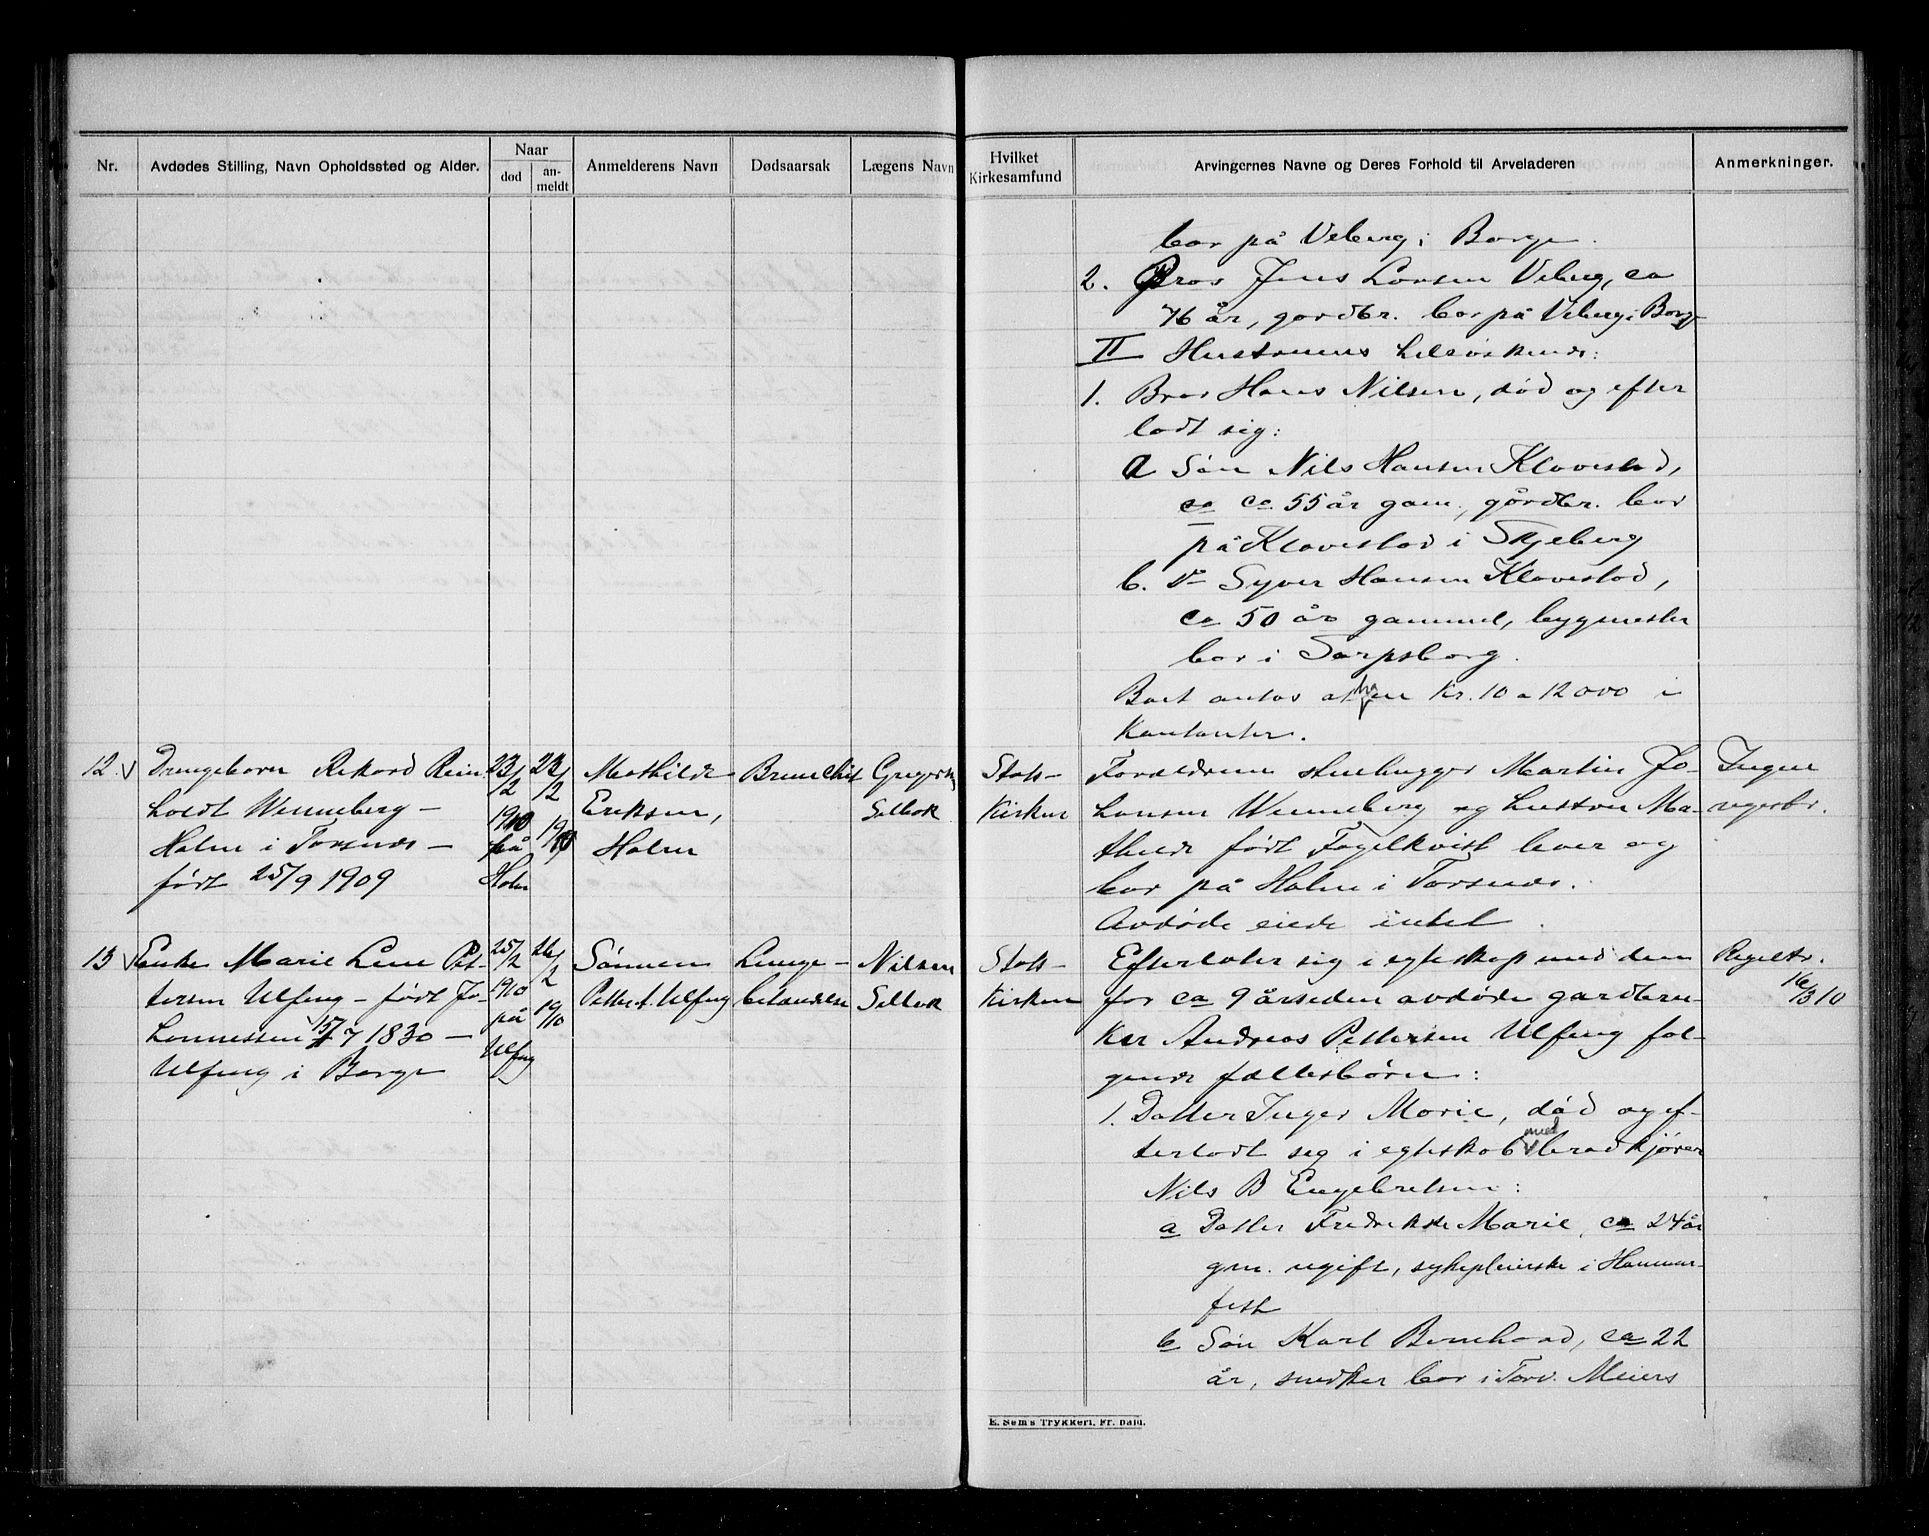 Nr.
Avdødes Stilling, Navn Opholdssted og Alder.
Naar
død
an-
meldt
Anmelderens Navn
Dødsaarsak
Lægens Navn
Hvilket
Kirkesamfund
Arvingernes Navne og Deres Forhold til Arveladeren
Anmerkninger.
bor på Veberg i Borge.
2. Bror Jens Larsen Veberg, ca
76 år, gardbr. bor på Veberg i Borge
II Hustruens helsøskende:
1. Bror Hans Nilsen, død og efter
lodt sig:
a Søn Nils Hansen Klavestad,
ca ca. 55 år gam., gårdbr. bor
på Klavestad i Skjeberg
b. do Syver Hansen Klavestad,
ca 50 år gammel, bygmester
bor i Sarpsborg.
Boet antas at ha en kr. 10 a 12000 i
Kontanter.
12.
Drengebarn Rikard Rein
holdt Wenneberg –
Holm i Torsnæs –
født 25/9 1909
23/2
1910
på
Holm
23/2
1910
Mathilde
Eriksen,
Holm
Bronchit
Gregersen
Sellbok
Stats-
Kirken
Forældrene stenhugger Martin Jo-
hansen Wenneberg og hustru Ma-
thilde født Fagelkvist lever og
bor på Holm i Torsnæs.
Avdøde eiede intet.
Ingen
røgtsbr.
13
Enke Marie Lene Pet-
tersen Ulfeng – født Jo-
hannessen 15/7 1830 –
Ulfeng i Borge
25/2
1910
på
Ulfeng
26/2
19/10
Sønnen
Petter A. Ulfeng
Lunge-
betændelse
Nilsen
Sellbok
Stats-
Kirken
Efterlater sig i egteskap med den
for ca 9 år siden avdøde gardbru-
ker Andreas Pettersen Ulfeng føl-
gende fællesbørn:
1. Datter Inger Marie, død og ef-
terlodt sig i egteskab med brødkjører
Nils B Engebretsen:
a Datter Fredrikke Marie, ca 24 år
gm. ugift, sykepleierske i Hammer-
fest
b Søn Karl Bernhard, ca 22
år, snedker bor i Tord. Meiers
Regeltr.
16/3 10
E. Sem's Trykkeri, Fr. hald.